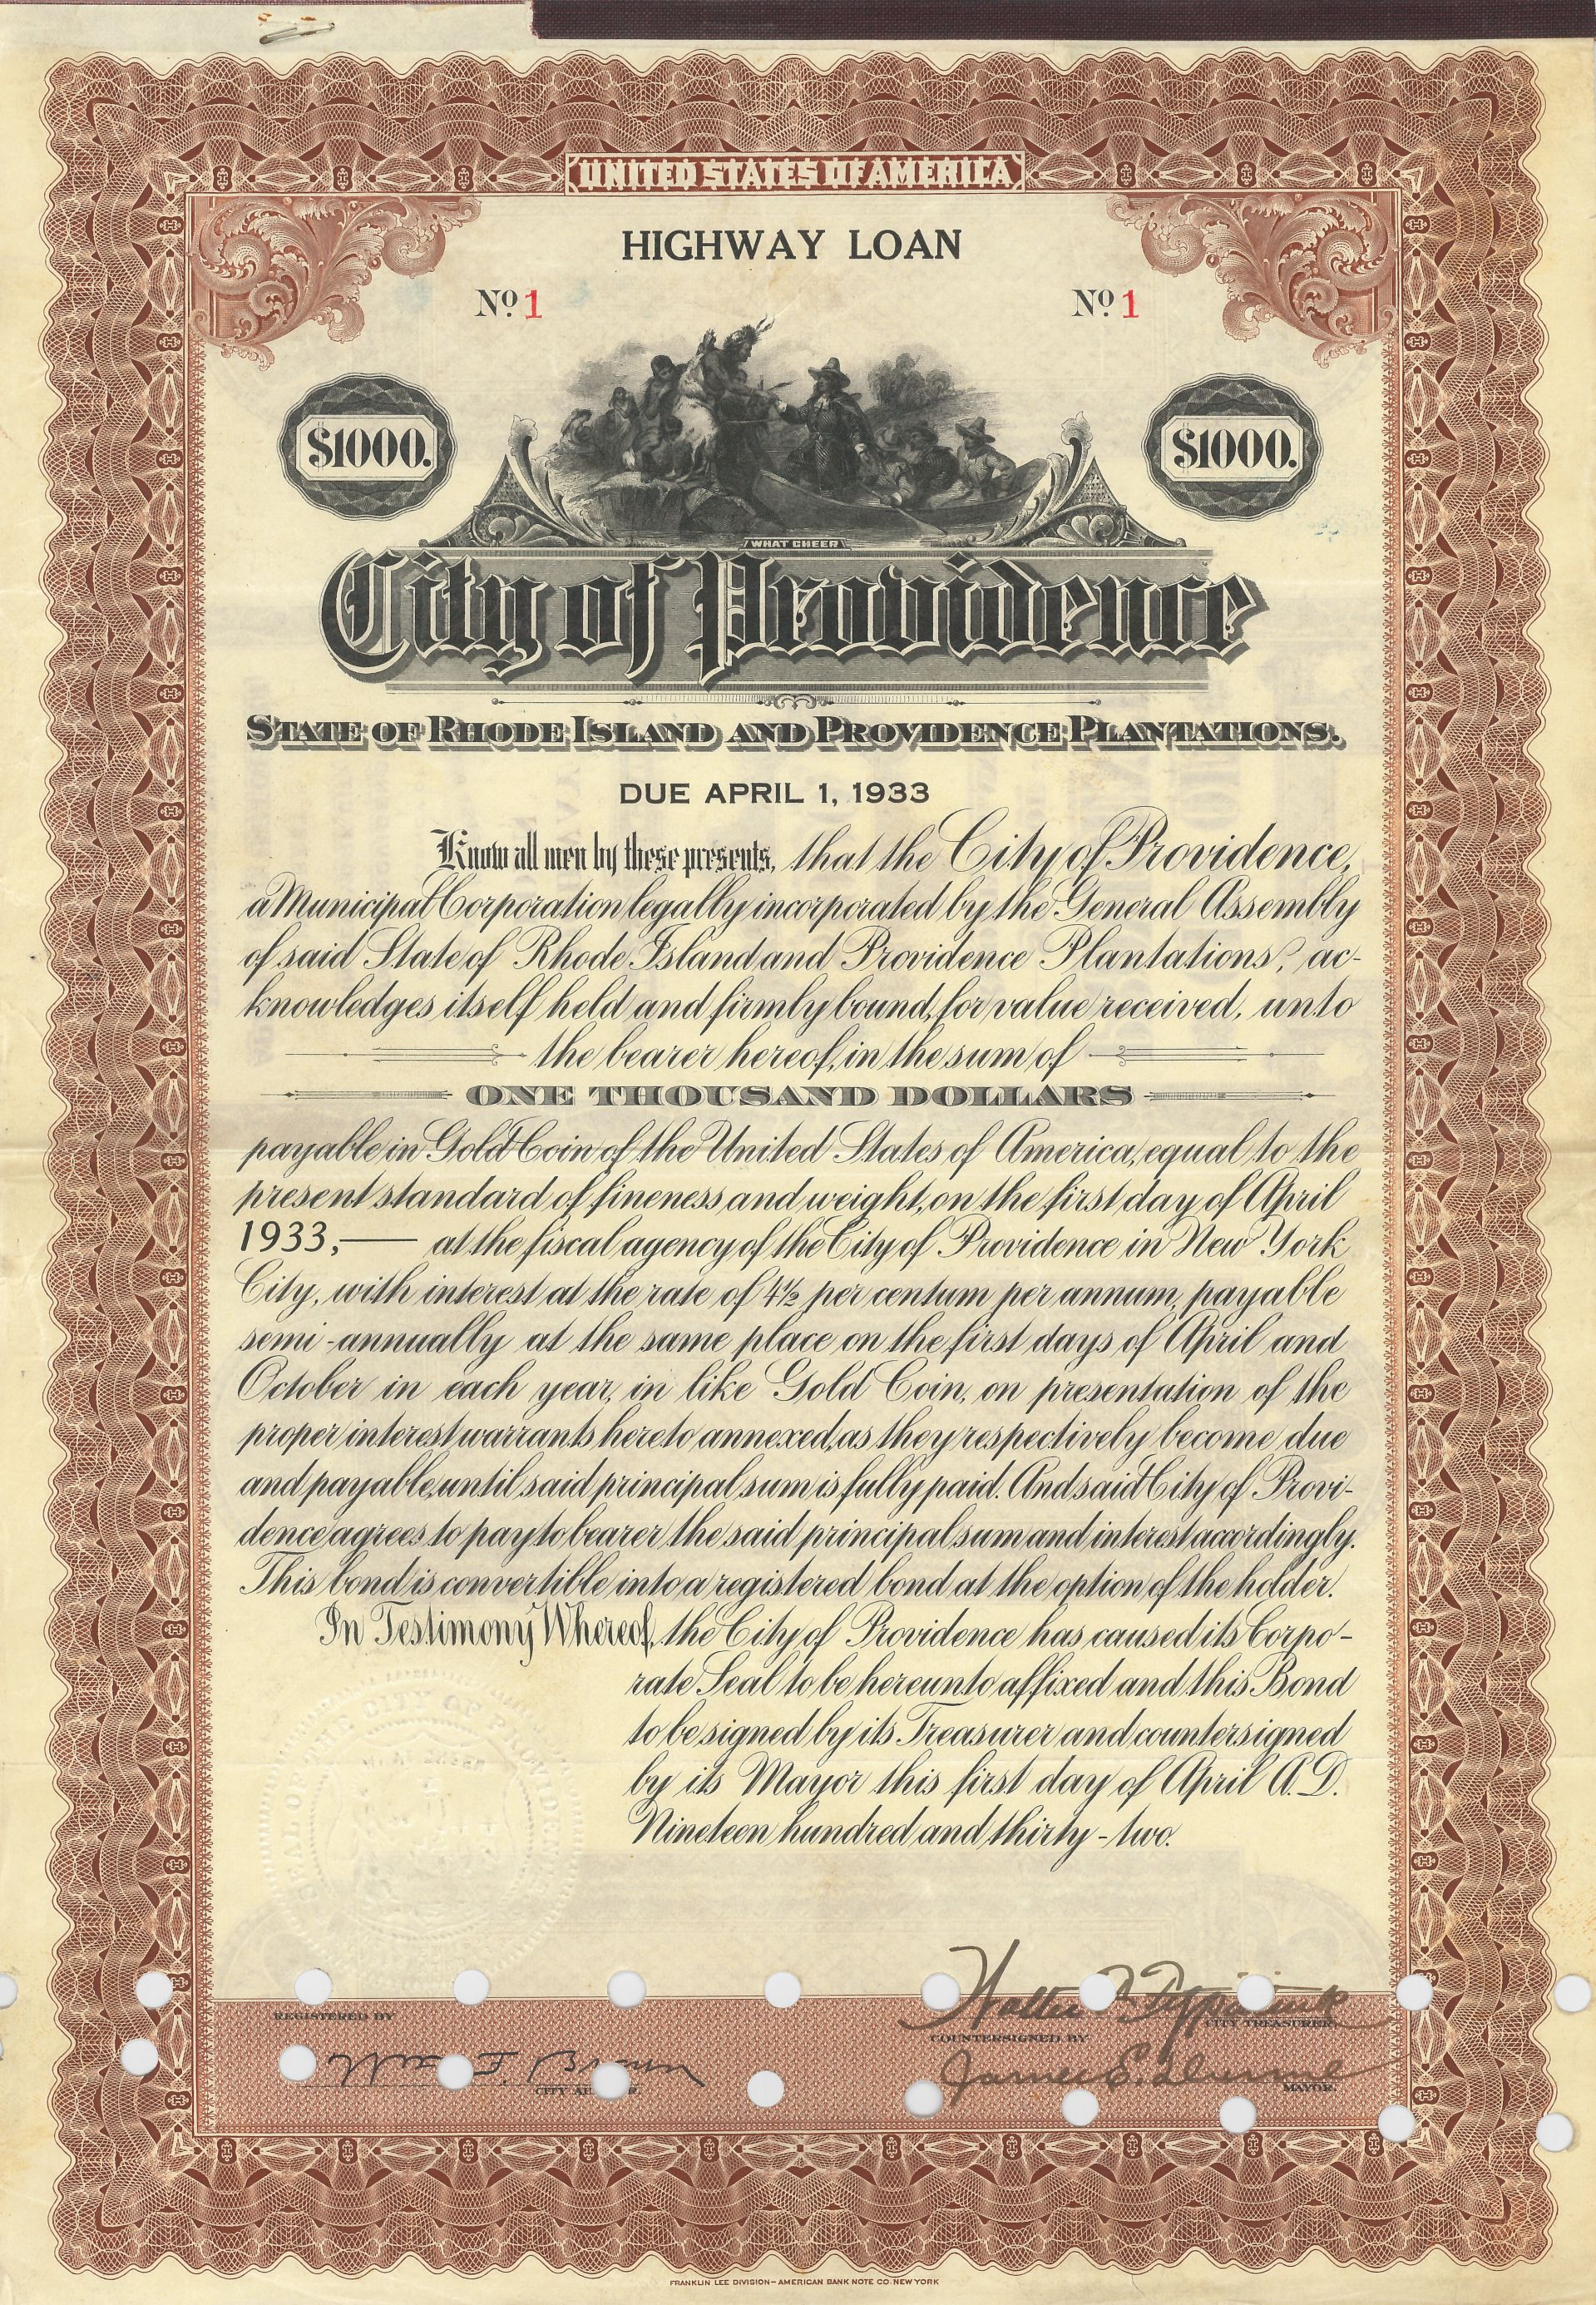 UNITED STATES OF AMERICA
HIGHWAY LOAN
No. 1 No. 1
$1000. $1000.
WHAT CHEER
City of Providence
STATE OF RHODE ISLAND AND PROVIDENCE PLANTATIONS.
DUE APRIL 1, 1933
Know all men by these presents, that the City of Providence,
a Municipal Corporation legally incorporated by the General Assembly
of said State of Rhode Island and Providence Plantations, ac-
knowledges itself held and firmly bound, for value received, unto
the bearer hereof, in the sum of
ONE THOUSAND DOLLARS
payable in Gold Coin of the United States of America, equal to the
present standard of fineness and weight, on the first day of April
1933, — at the fiscal agency of the City of Providence in New York
City, with interest at the rate of 4½ per centum per annum, payable
semi-annually at the same place on the first days of April and
October in each year, in like Gold Coin, on presentation of the
proper interest warrants hereto annexed, as they respectively become due
and payable, until said principal sum is fully paid. And said City of Provi-
dence agrees to pay to bearer the said principal sum and interest accordingly.
This bond is convertible into a registered bond at the option of the holder.
In Testimony Whereof, the City of Providence has caused its Corpo-
rate Seal to be hereunto affixed and this Bond
to be signed by its Treasurer and countersigned
by its Mayor this first day of April A.D.
Nineteen hundred and thirty-two.
CITY OF
Walter F. Fitzpatrick
REGISTERED BY CITY TREASURER
COUNTERSIGNED BY
Wm F. Brown James E. Dunne
CITY MAYOR.
FRANKLIN LEE DIVISION-AMERICAN BANK NOTE CO. NEW YORK